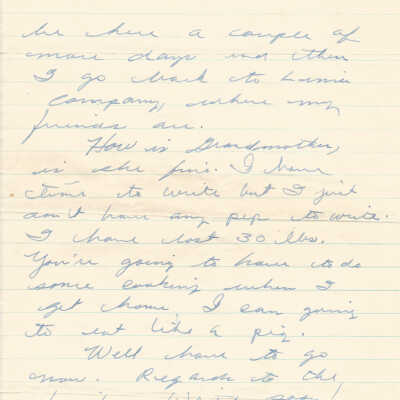 be here a couple of
more days and then
I go back to Line
Company, where my
friends are.
How is Grandmother,
is she fine. I have
time to write but I just
don't have any pep to write.
I have lost 30 lbs.
You're going to have to do
some cooking when I
get home, I am going
to eat like a pig.
Well have to go
now. Regards to the